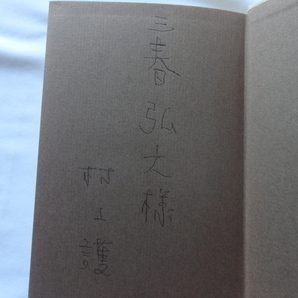 三春弘文様
村上護